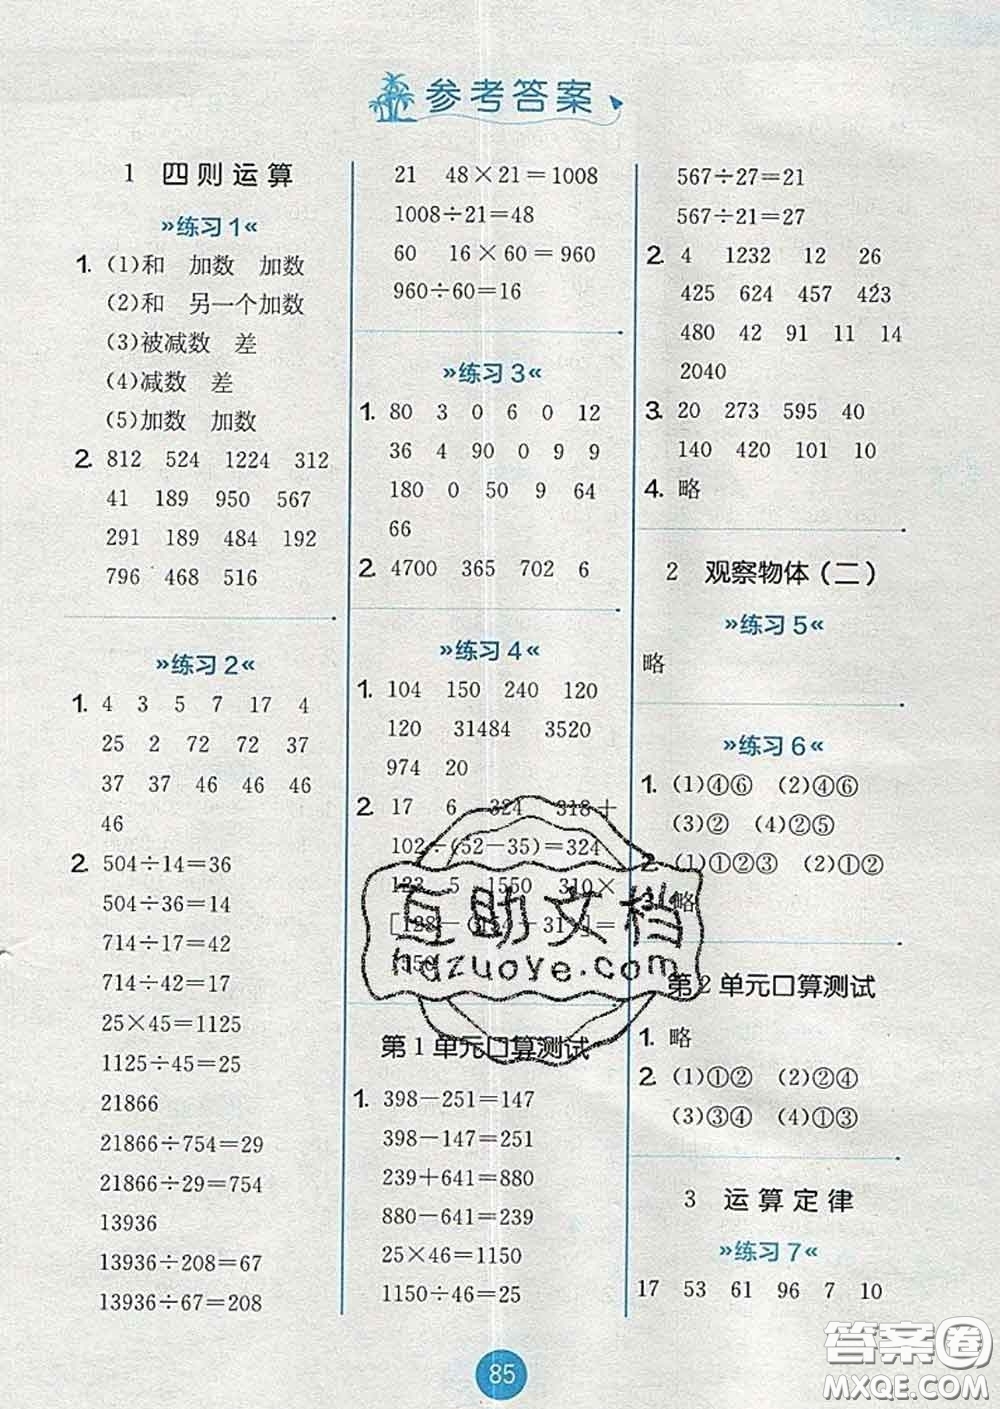 参考答案
1 四则运算
»练习1«
1. (1)和 加数 加数
(2)和 另一个加数
(3)被减数 差
(4)减数 差
(5)加数 加数
2. 812 524 1224 312
41 189 950 567
291 189 484 192
796 468 516
»练习2«
1. 4 3 5 7 17 4
25 2 72 72 37
37 37 46 46 46
46
2. 504÷14=36
504÷36=14
714÷17=42
714÷42=17
25×45=1125
1125÷45=25
21866
21866÷754=29
21866÷29=754
13936
13936÷208=67
13936÷67=208
21 48×21=1008
1008÷21=48
60 16×60=960
960÷60=16
»练习3«
1. 80 3 0 6 0 12
36 4 90 0 9 9
180 0 50 9 64
66
2. 4700 365 702 6
»练习4«
1. 104 150 240 120
120 31484 3520
974 20
2. 17 6 324 318+
102÷(52-35)=324
123 5 1550 310×
1550
第1单元口算测试
1. 398-251=147
398-147=251
239+641=880
880-641=239
25×46=1150
1150÷46=25
567÷27=21
567÷21=27
2. 4 1232 12 26
425 624 457 423
480 42 91 11 14
2040
3. 20 273 595 40
140 420 101 10
4. 略
2 观察物体(二)
»练习5«
略
»练习6«
1. (1)④⑥ (2)④⑥
(3)② (4)②⑤
2. (1)①②③ (2)①②
3. 略
第2单元口算测试
1. 略
2. (1)①② (2)②④
(3)③④ (4)①③
3 运算定律
»练习7«
17 53 61 96 7 10
85
互助文档
hazuoye.com
答案圈
MXQE.COM